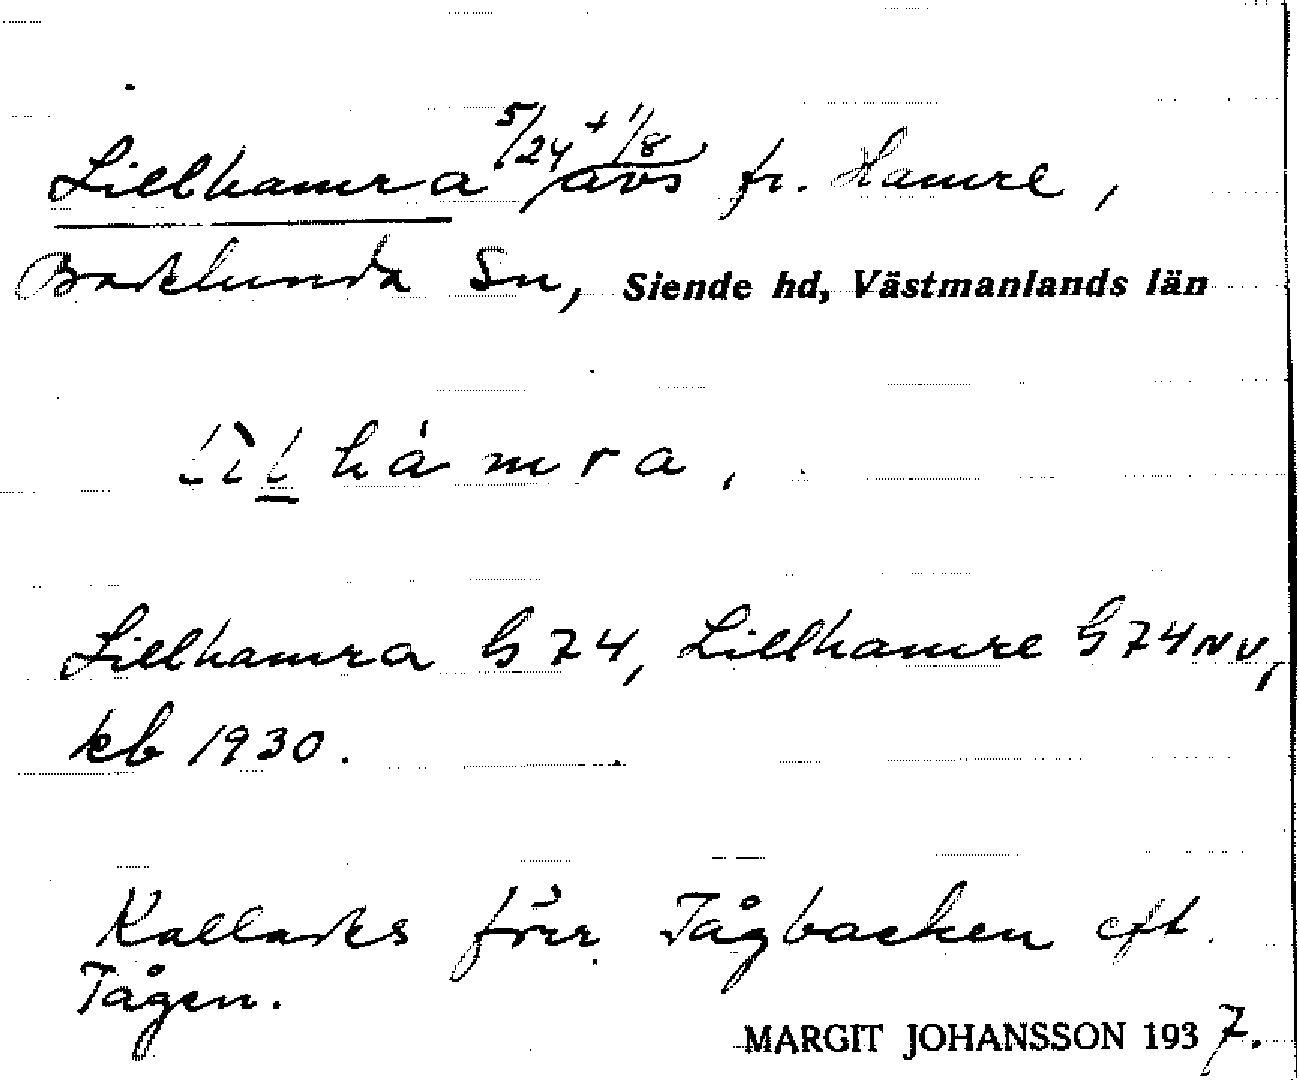 Lillhamra 5/24 + 1/8 avs fr. Hamre,
Badelunda Sn, Siende hd, Västmanlands län
hàmra,
Lillhamra G 74, Lillhamre G 74 NV,
kb 1930.
Kallades förr Tågbacken eft.
Tågen.
MARGIT JOHANSSON 1937.